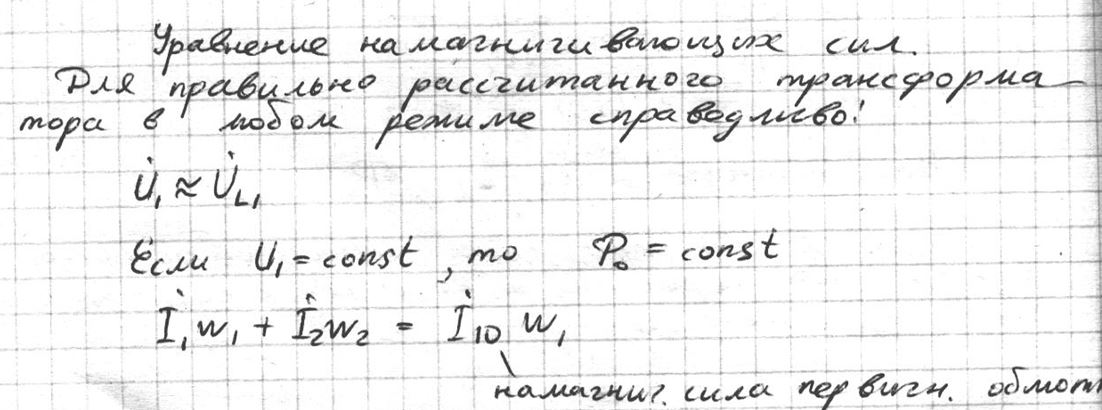 Уравнение намагничивающих сил.
Для правильно рассчитанного трансформа-
тора в любом режиме справедливо:
U̇₁ ≈ U̇_L₁
Если U₁ = const, то P₀ = const
İ₁w₁ + İ₂w₂ = İ₁₀ w₁
намагнич. сила первичн. обмот